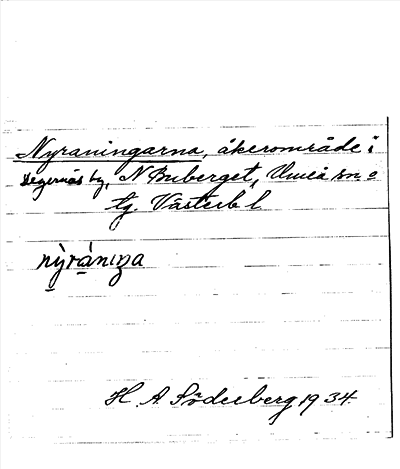 Nyraningarna, åkerområde i
Degernäs by, N Buberget, Umeå sn. o
tg. Västerb l
nỳránıŋa
H. A. Söderberg 1934.